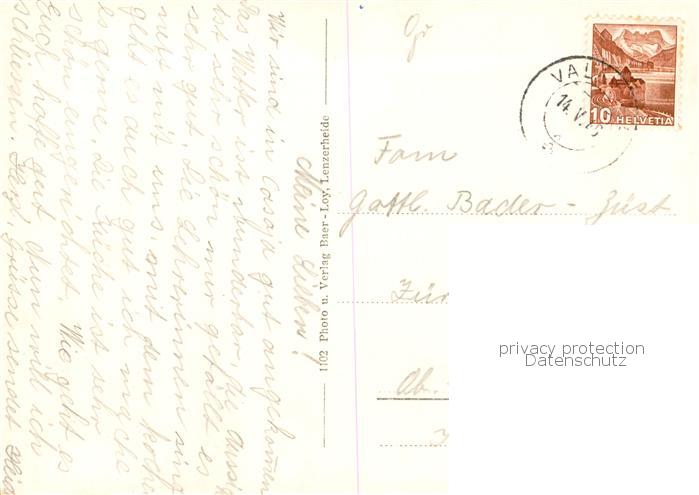 Meine Lieben!
Wir sind in Casoja gut angekommen
Das Wetter ist wunderbar, die Aussicht
ist sehr schön mir gefällt es
sehr gut. Die Lehrerinnen sind
nett mit uns, mit dem kochen
geht es auch gut ich mache
es gerne, die Küche ist sehr
schön eingerichtet. Wie geht es
Euch hoffe gut. Nun will ich
schliessen. Herzl. Grüsse sendet
1102 Photo u. Verlag Baer-Loy, Lenzerheide
VAL
14.V.
10 HELVETIA
Fam
Gottl. Bader-Züst
Zür
Ob.
privacy protection
Datenschutz